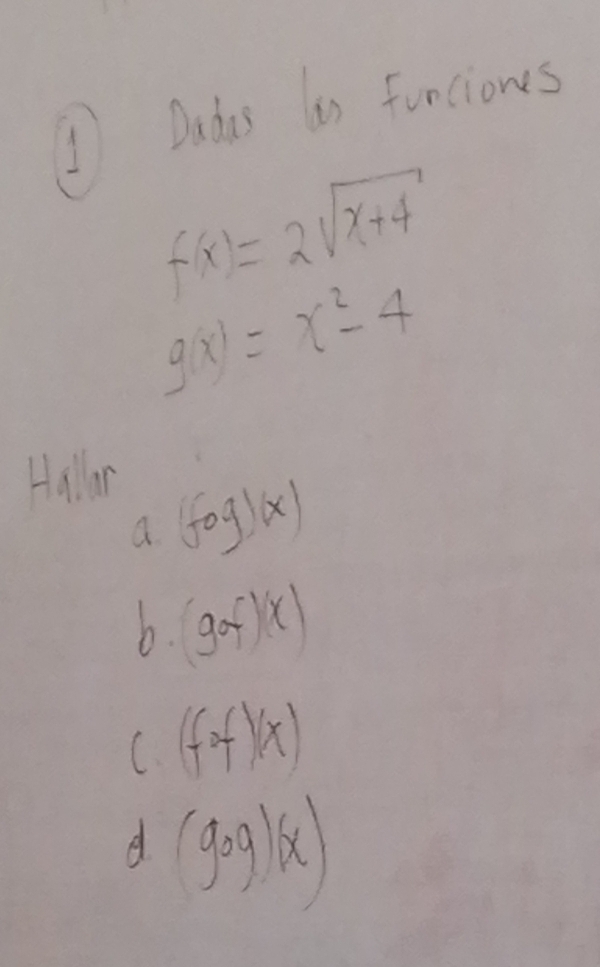 1 Dadas las Funciones
f(x) = 2√(x+4)
g(x) = x² - 4
Hallar
a. (fog)(x)
b. (gof)(x)
c. (fof)(x)
d. (gog)(x)